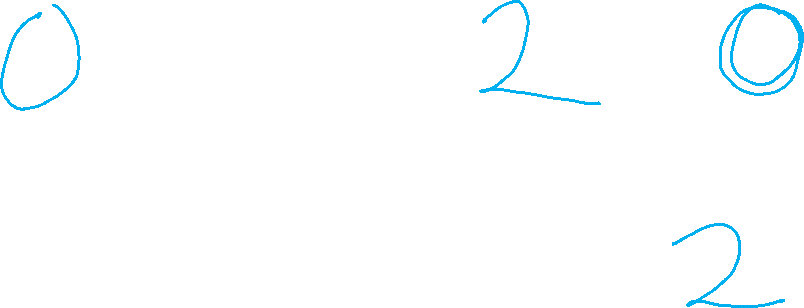 0 2 0
2